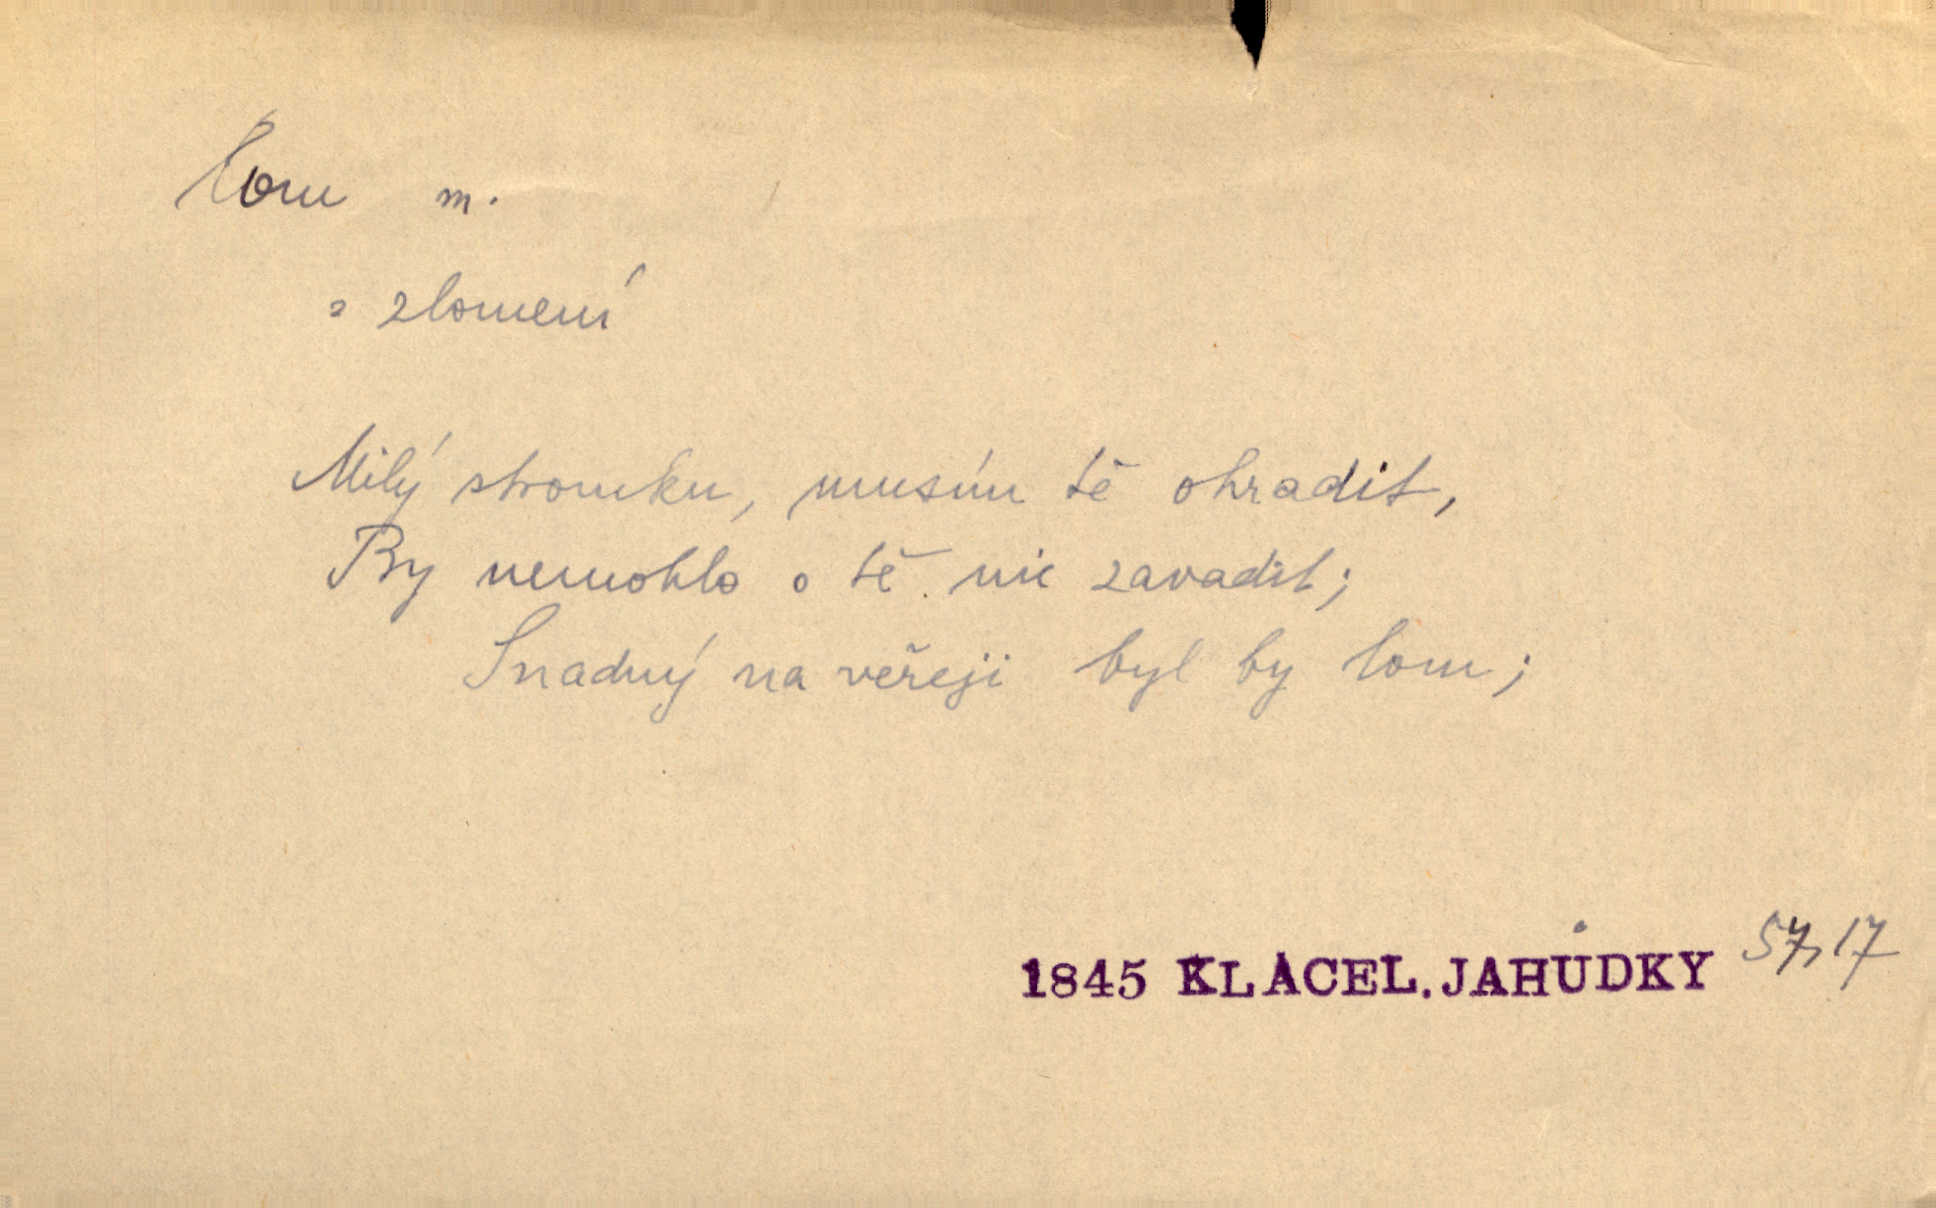 lom m.
= zlomení
Milý stromku, musím tě ohradit,
By nemohlo o tě nic zavadit;
Snadný na veřeji byl by lom;
1845 KLACEL. JAHŮDKY 57, 17